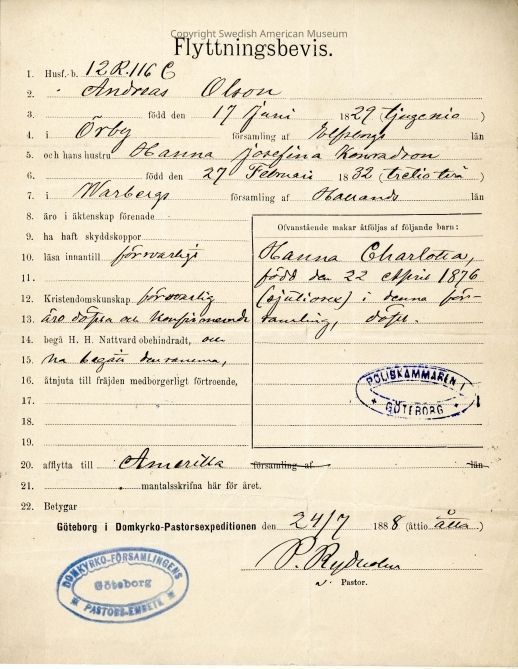 Copyright Swedish American Museum
Flyttningsbevis.
1. Husf.-b. 12 R. 116 C
2. Andreas Olson
3. född den 17 Juni 1829 (tjugenio)
4. i Örby församling af Elfsborgs län
5. och hans hustru Hanna Josefina Konradson
6. född den 27 Februari 1832 (tretiotvå)
7. i Warbergs församling af Hallands län
8. äro i äktenskap förenade
9. ha haft skyddskoppor
10. läsa innantill försvarligt
11.
12. Kristendomskunskap försvarlig
13. äro döpta och konfirmerade
14. begå H. H. Nattvard obehindradt, och
15. ha begått densamma,
16. åtnjuta till fräjden medborgerligt förtroende,
17.
18.
19.
Ofvanstående makar åtföljas af följande barn:
Hanna Charlotta,
född den 22 April 1876
(sjutiosex) i denna för-
samling, döpt.
POLISKAMMAREN I
GÖTEBORG
20. afflytta till Amerika församling af län
21. mantalsskrifna här för året.
22. Betygar
Göteborg i Domkyrko-Pastorsexpeditionen den 24/7 1888 (åttio åtta)
P. Rydholm
v. Pastor.
DOMKYRKO-FÖRSAMLINGENS
Göteborg
PASTORS-EMBETE